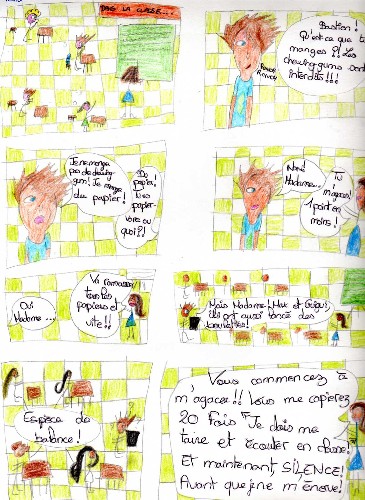 DANS LA CLASSE...
Bastien !
Qu'est-ce que tu
manges ?! Les
chewing-gums sont
interdits !!!
Je ne mange
pas de chewing
gum ! Je mange
du papier !
Du
papier !
papier-
vore ou
quoi ?!
Non !
Madame...
Tu
m'agaces !
1 point en
moins !
Oui
Madame...
Va ramasser
tous les
papiers et
vite !!
Mais Madame ! Max et
ils ont aussi lancé des
boulettes !
Espèce de
balance !
Vous commencez à
m'agacer !! Vous me copierez
20 fois "Je dois me
taire et écouter en classe!
Et maintenant SILENCE!
Avant que je ne m'énerve!